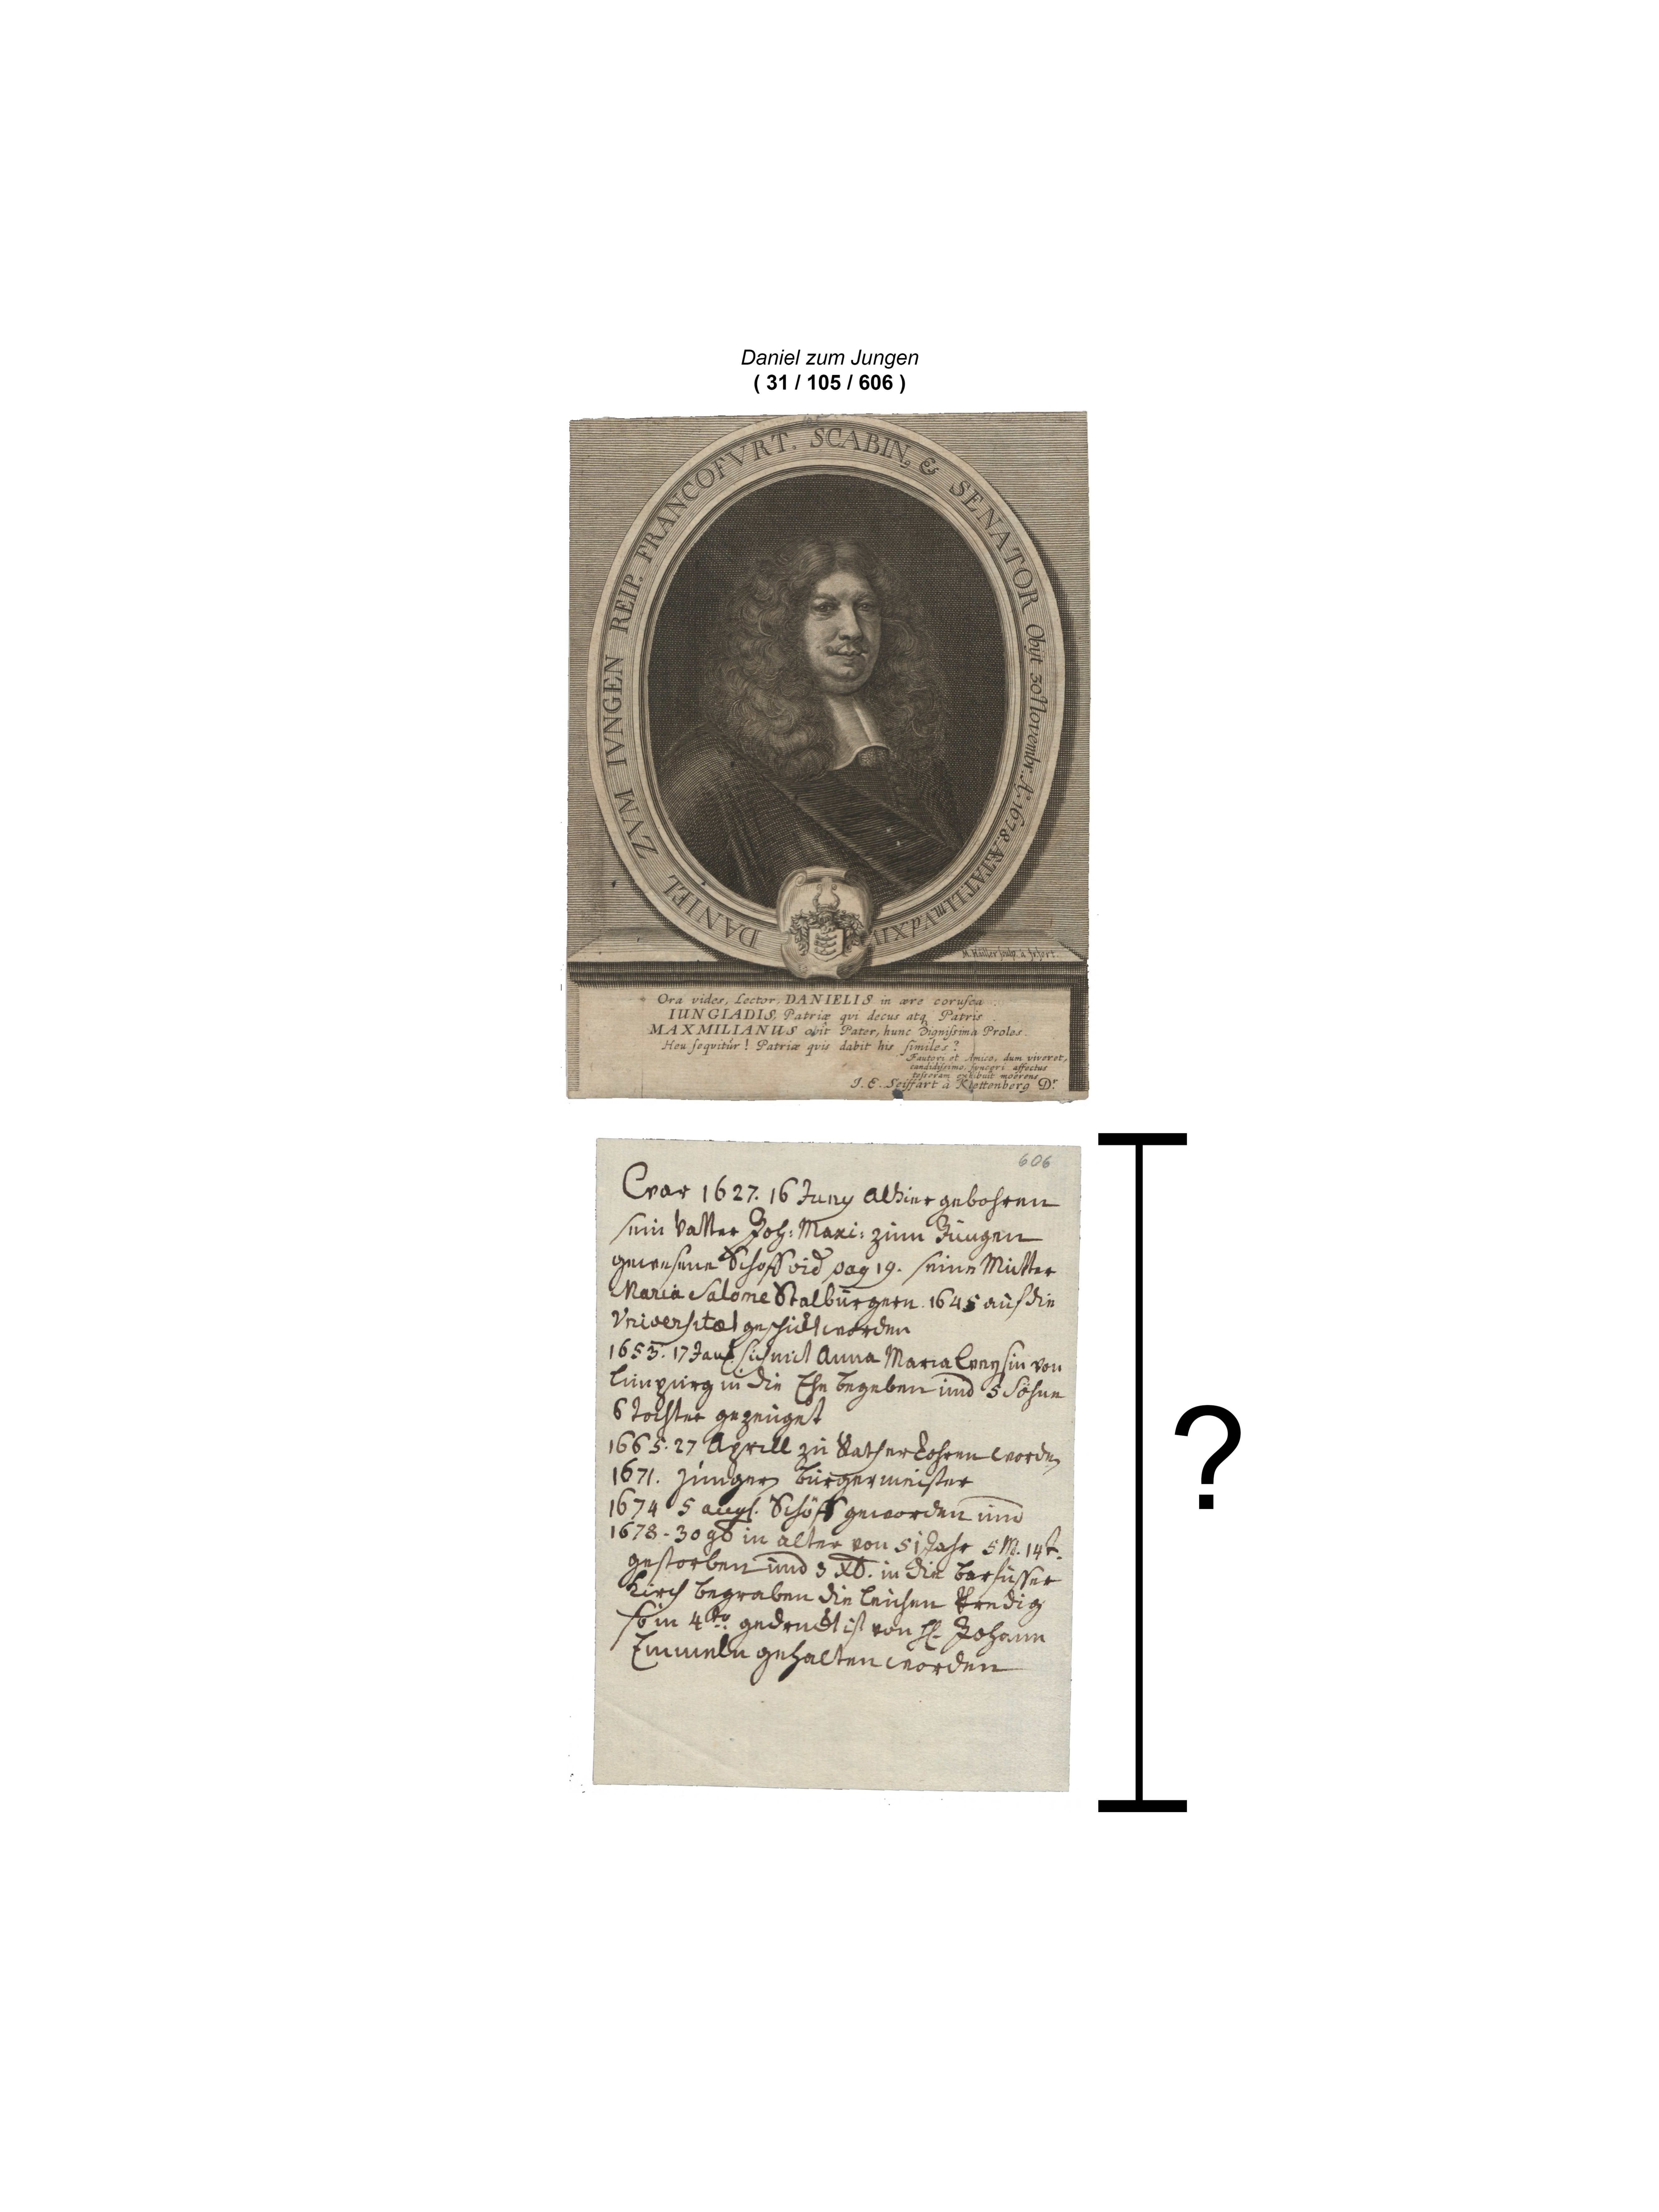 Daniel zum Jungen
( 31 / 105 / 606 )
DANIEL ZVM IVNGEN REIP. FRANCOFVRT. SCABIN, & SENATOR Obijt 30 Novembr. A.º 1678. ÆTAT. LI m V d XIV
M. Hailer sculp.
Ora vides, Lector, DANIELIS in ære corusca
IUNGIADIS, Patriæ qvi decus atq. Patris
MAXMILIANUS obit Pater, hunc Dignissima Proles
Heu seqvitur! Patriæ qvis dabit his similes?
Fautori et Amico, dum viveret,
candidissimo, synceri affectus
tesseram exhibuit moerens
J. E. Seiffart à Klettenberg Dr.
606
Er war 1627. 16 Juny Alhier gebohren
sein Vatter Joh: Maxi: zum Jungen
gewesene Schöff vid pag 19. seine Mutter
Maria Salome Stalburgern. 1645 auf die
Vniversitæt geschickt worden
1653. 17 Jan. sich mit Anna Maria von
Limpurg in die Ehe begeben und 5 Söhne
6 Tochter gezeuget
1665. 27 Aprill zu Rath erkohren worden
1671. Junger Burgermeister
1674 5 augs. Schöff geworden und
1678 - 30 9b in alter von 51 Jahr 5 M. 14 t.
gestorben und 3 Xb. in die Barfusser
Kirch begraben die leichen Predig
so in 4to. gedruckt ist von H. Johann
Emmeln gehalten worden
?